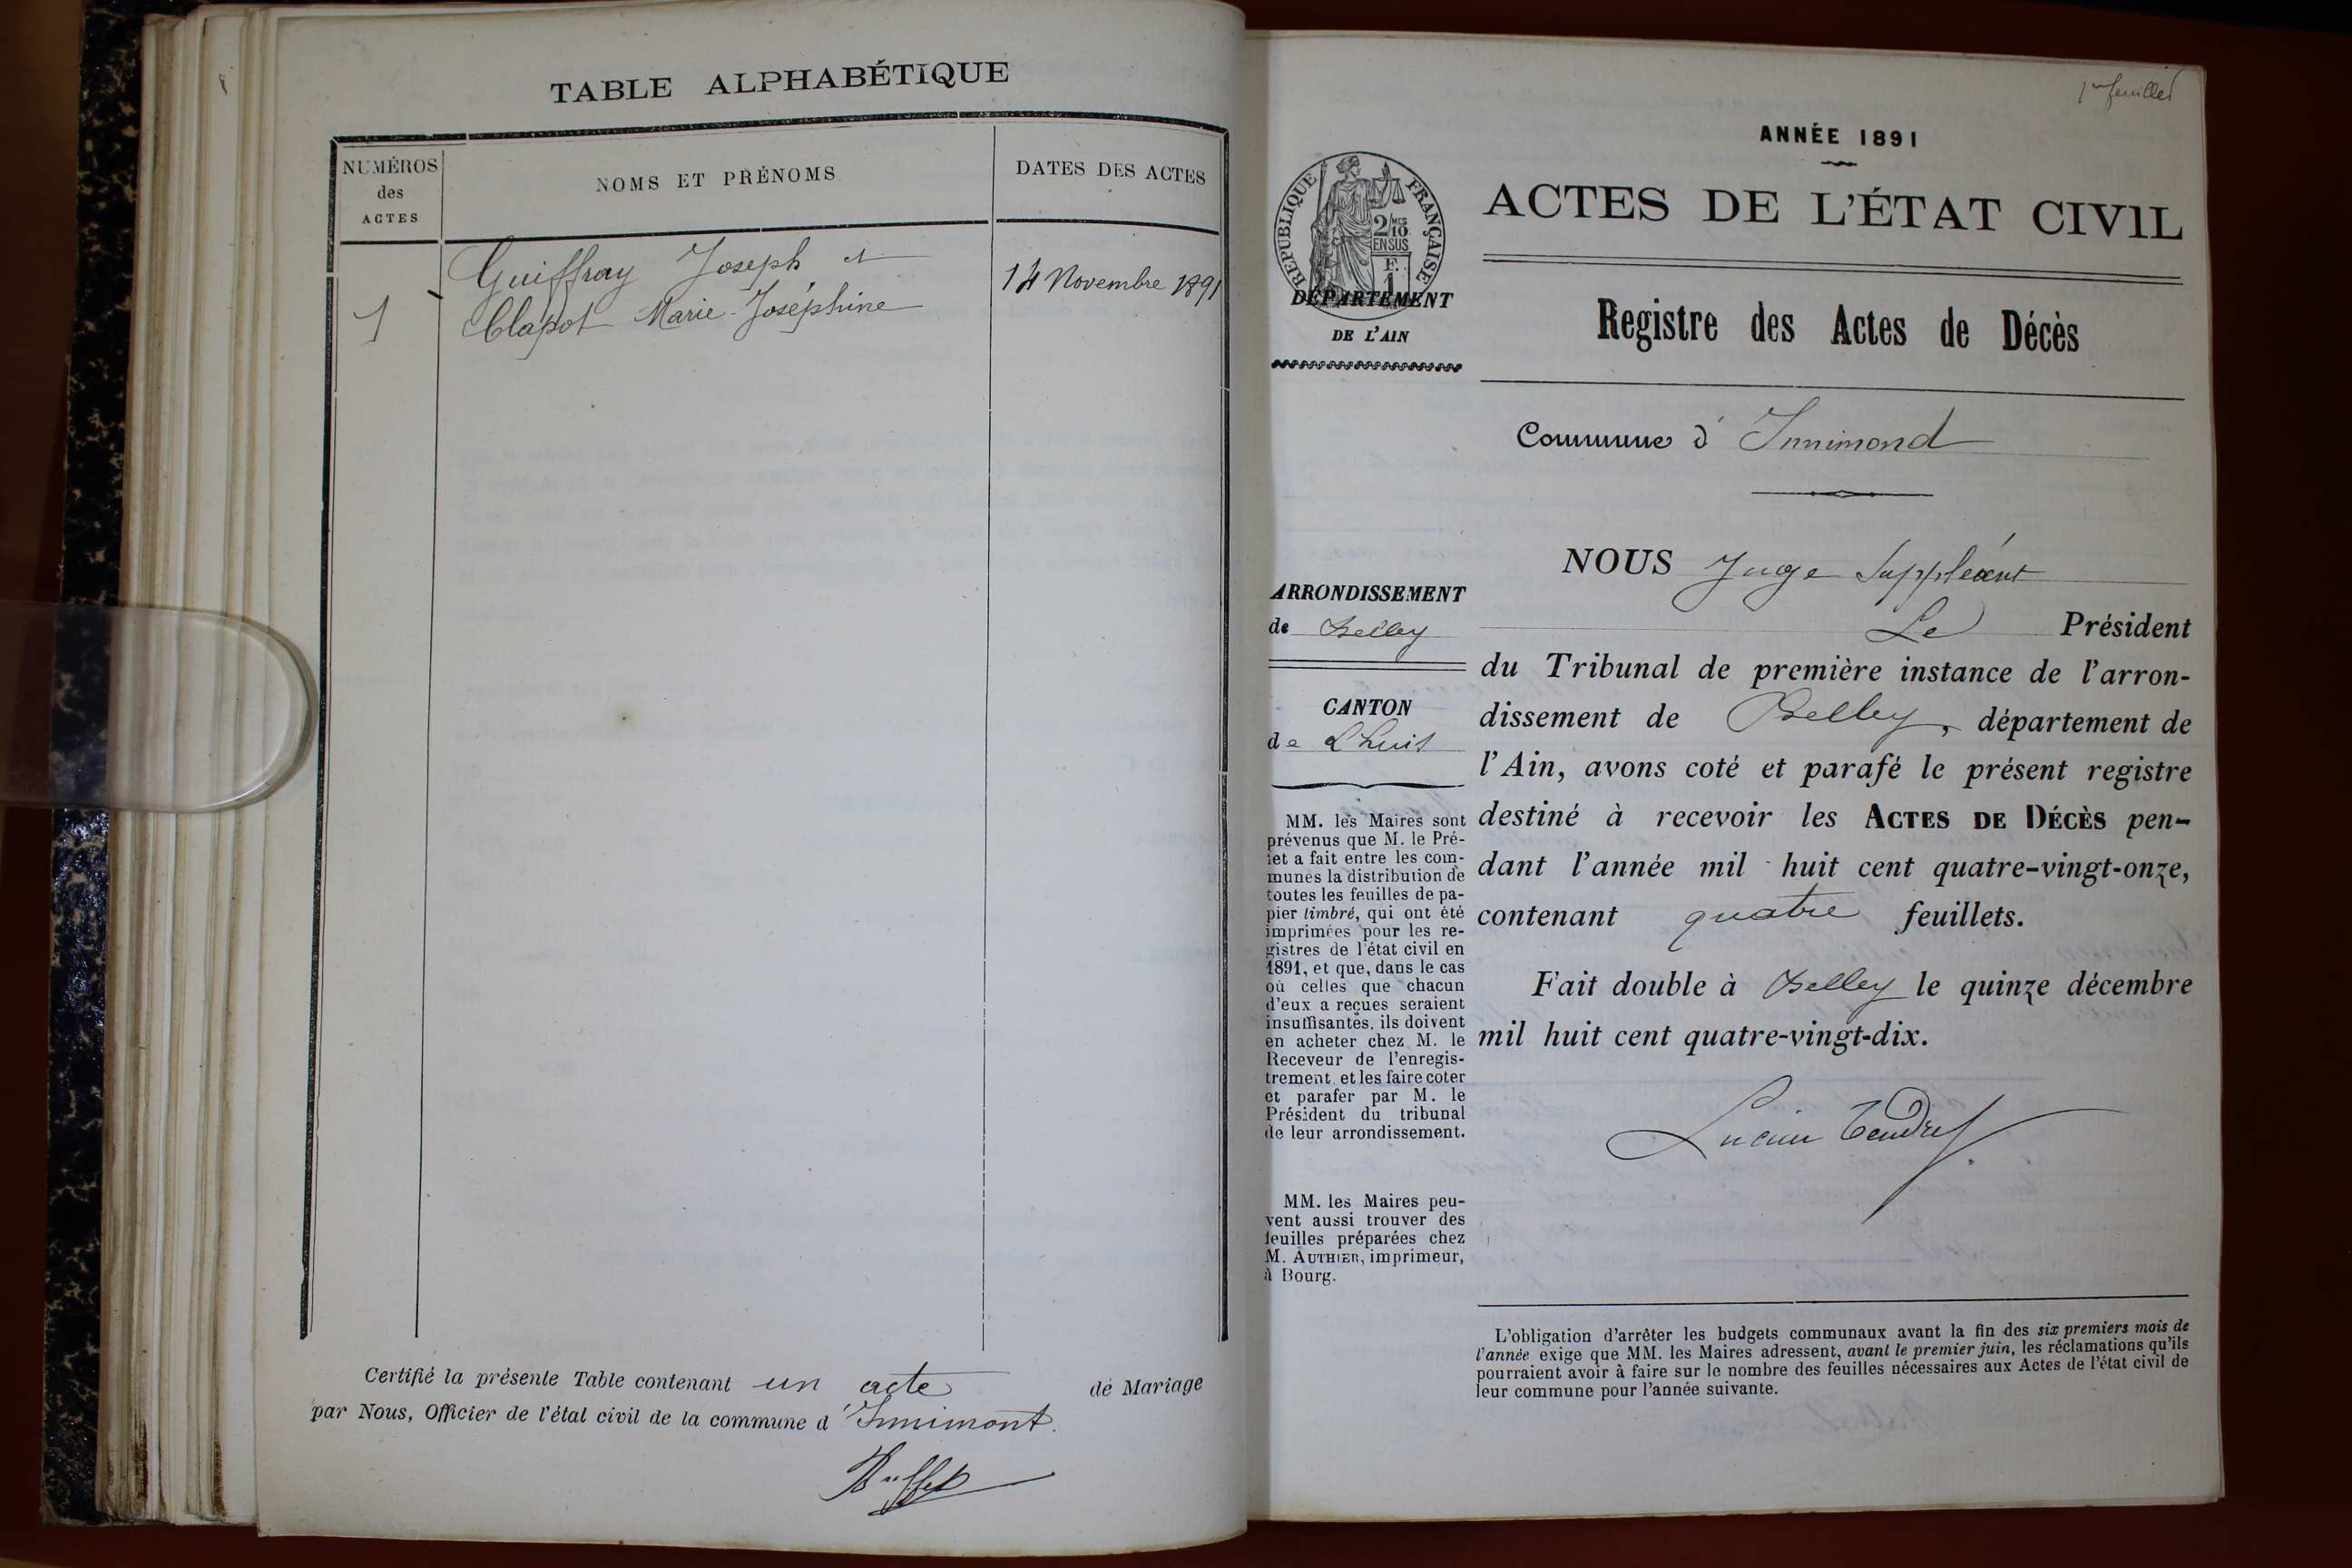 TABLE ALPHABÉTIQUE
NUMÉROS
des
ACTES
NOMS ET PRÉNOMS
DATES DES ACTES
1
Guiffray Joseph et
Clapot Marie-Joséphine
14 Novembre 1891
Certifié la présente Table contenant un acte de Mariage
par Nous, Officier de l'état civil de la commune d'Innimont.
Buffet
1er feuillet
ANNÉE 1891
ACTES DE L'ÉTAT CIVIL
RÉPUBLIQUE FRANÇAISE
2/10
MES
EN SUS
F.
1
DÉPARTEMENT
DE L'AIN
Registre des Actes de Décès
Commune d'Innimond
ARRONDISSEMENT
de Belley
CANTON
de Lhuis
MM. les Maires sont
prévenus que M. le Pré-
fet a fait entre les com-
munes la distribution de
toutes les feuilles de pa-
pier timbré, qui ont été
imprimées pour les re-
gistres de l'état civil en
1891, et que, dans le cas
où celles que chacun
d'eux a reçues seraient
insuffisantes, ils doivent
en acheter chez M. le
Receveur de l'enregis-
trement et les faire coter
et parafer par M. le
Président du tribunal
de leur arrondissement.
MM. les Maires peu-
vent aussi trouver des
feuilles préparées chez
M. AUTHIER, imprimeur,
à Bourg.
NOUS Juge Suppléant
Le Président
du Tribunal de première instance de l'arron-
dissement de Belley, département de
l'Ain, avons coté et parafé le présent registre
destiné à recevoir les ACTES DE DÉCÈS pen-
dant l'année mil huit cent quatre-vingt-onze,
contenant quatre feuillets.
Fait double à Belley le quinze décembre
mil huit cent quatre-vingt-dix.
Lucien Tendret
L'obligation d'arrêter les budgets communaux avant la fin des six premiers mois de
l'année exige que MM. les Maires adressent, avant le premier juin, les réclamations qu'ils
pourraient avoir à faire sur le nombre des feuilles nécessaires aux Actes de l'état civil de
leur commune pour l'année suivante.